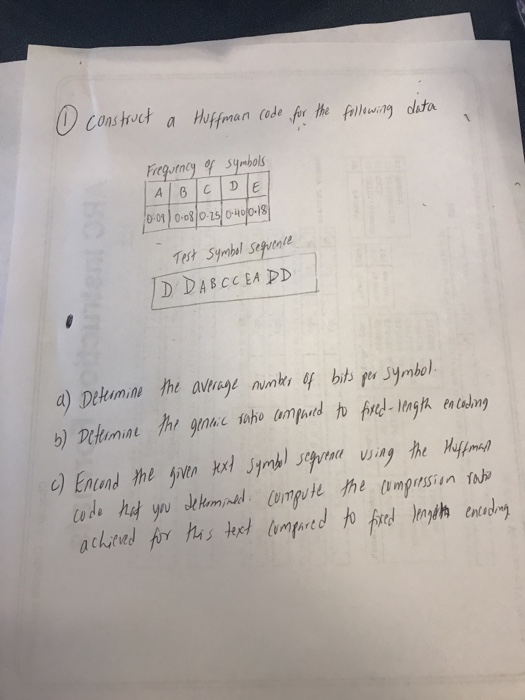 ① Construct a Huffman code for the following data
Frequency of symbols
A B C D E
0.09 0.08 0.25 0.40 0.18
Test Symbol sequence
D D A B C C E A D D
a) Determine the average number of bits per symbol.
b) Determine the generic ratio compared to fixed-length encoding
c) Encond the given text symbol sequence using the Huffman
code that you determined. compute the compression ratio
achieved for this text compared to fixed length encoding